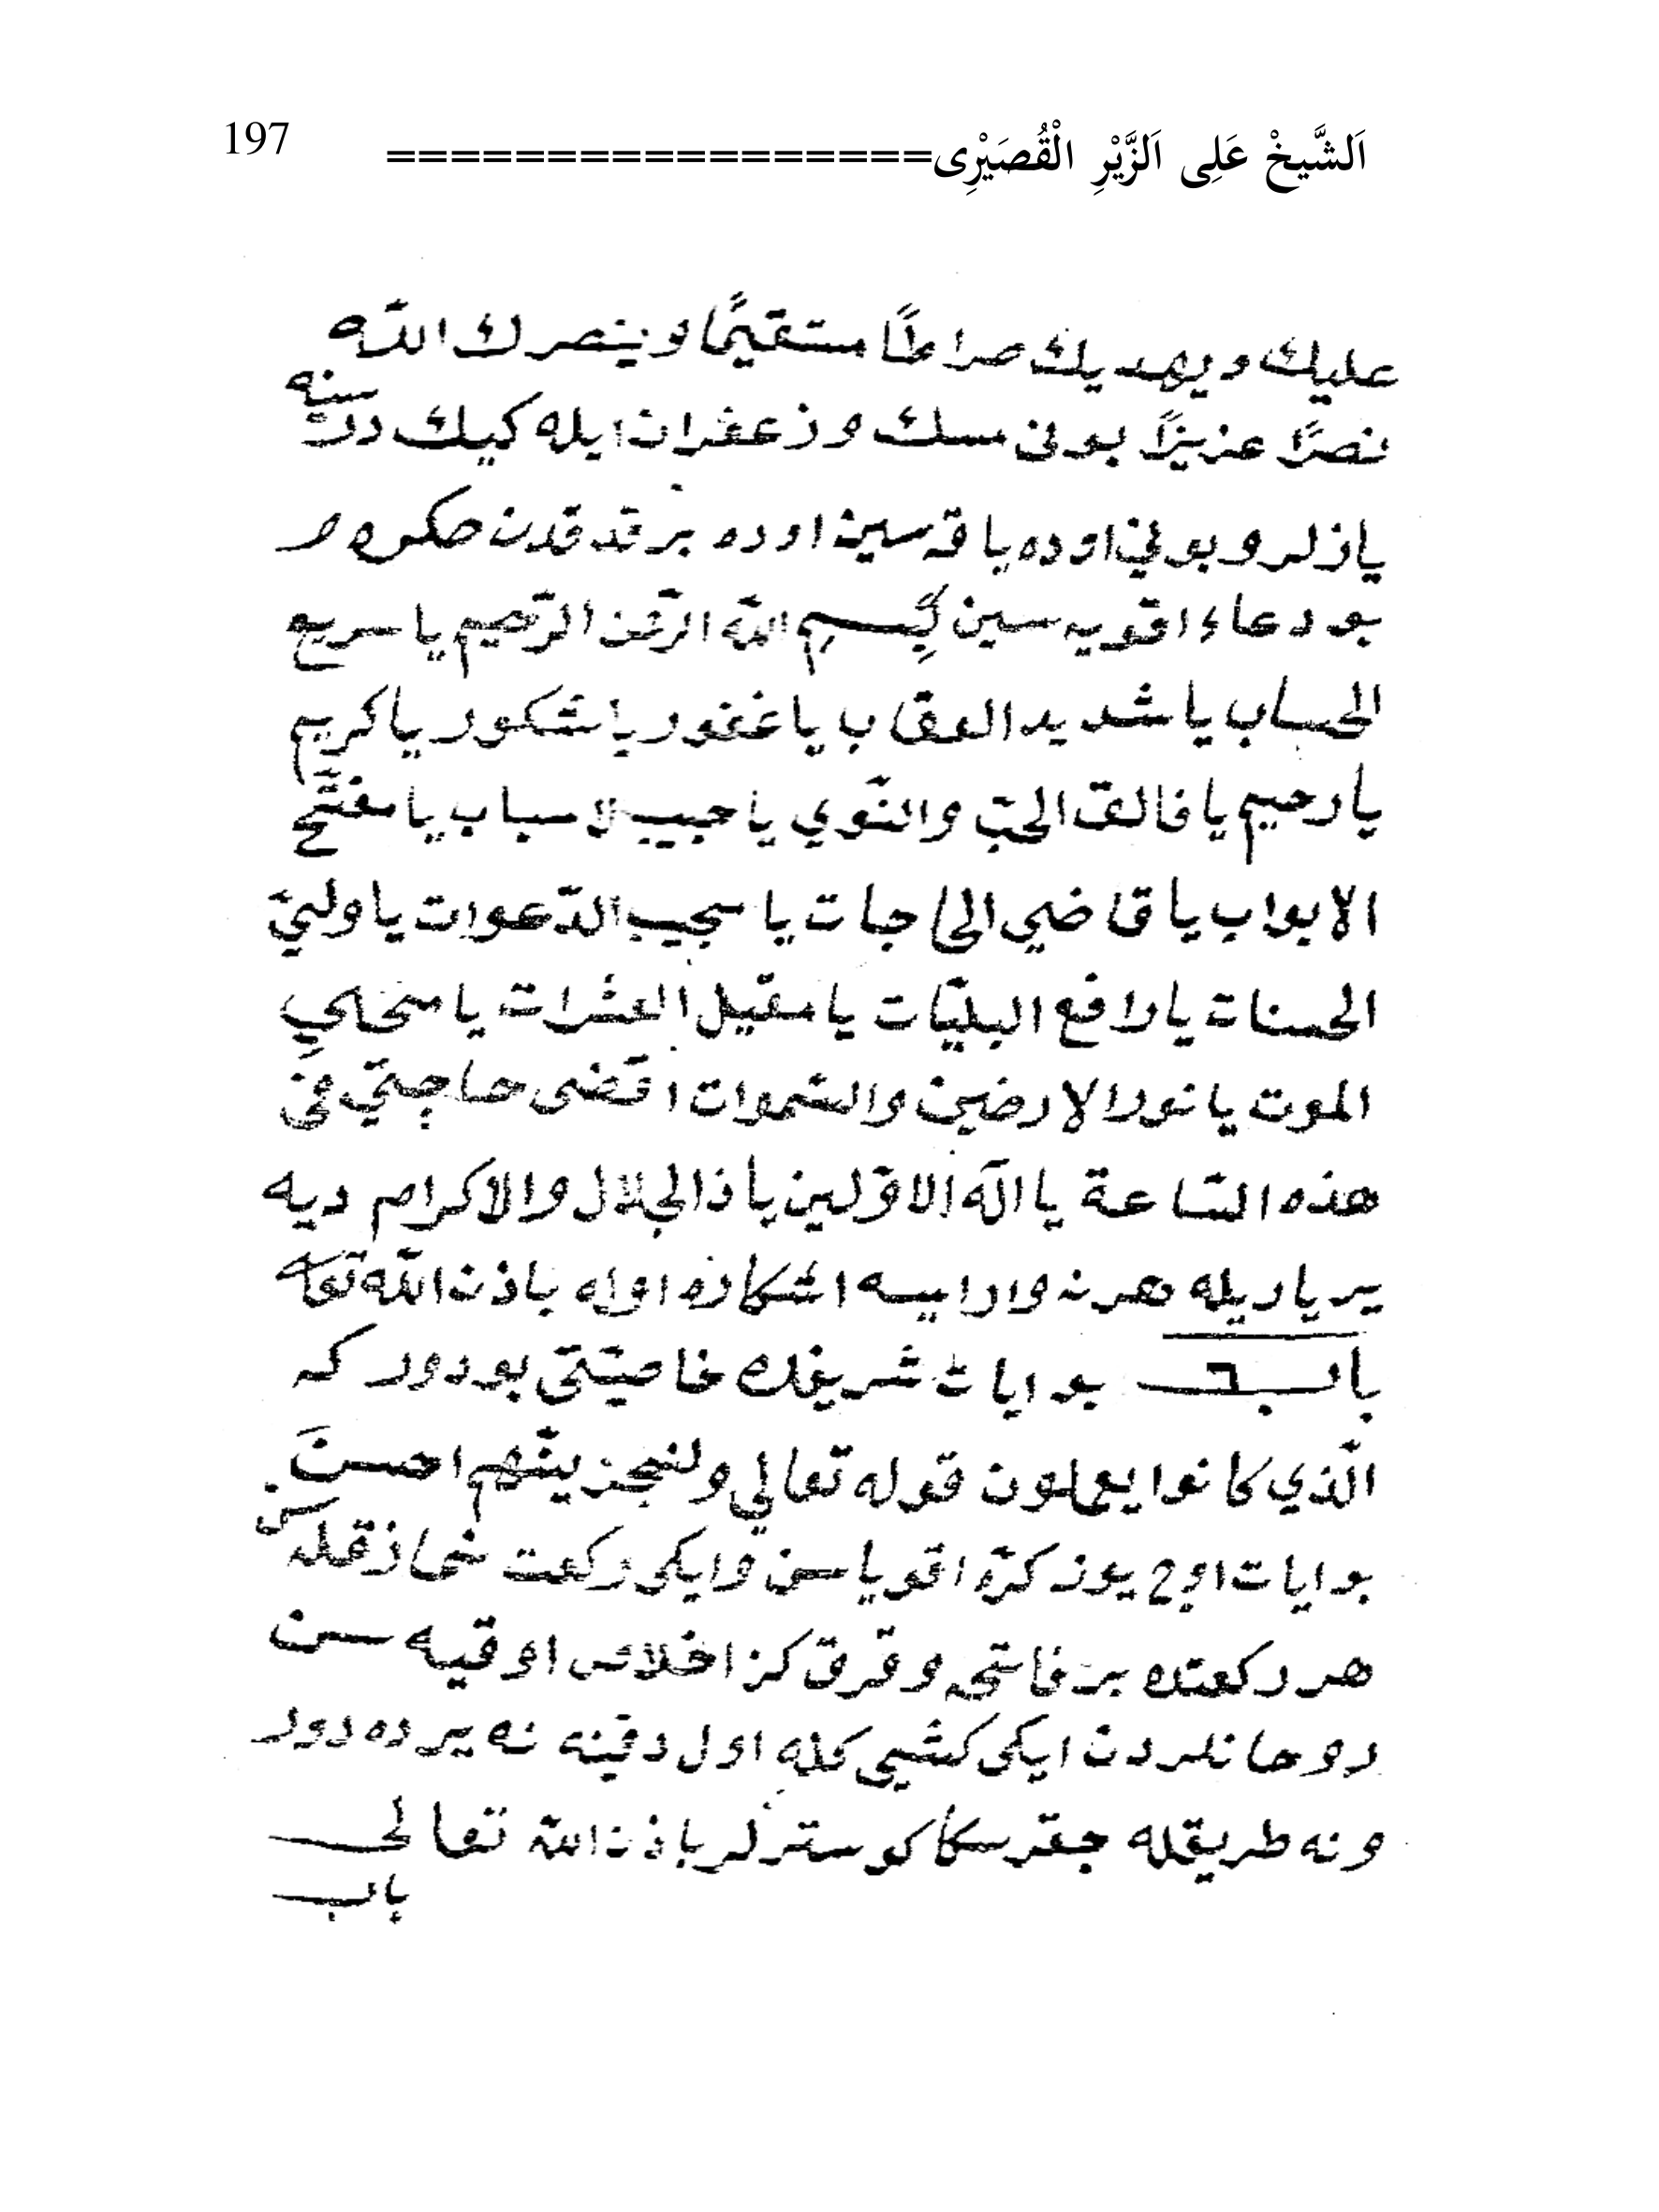 197 اَلشَّيخْ عَلِى اَلزَّيْرِ الْقُصَيْرِى=================
عليك ويهديك صراطًا مستقيمًا وينصرك الله
نصرًا عزيزًا بونى مسك وزعفران ايله كيك درسنه
يازلر وبوني اوده ياقه سين اوده برقد قدن صكره و
بو دعاء اقويه سين بِسمِ الله الرّحمن الرّحيم يا سريع
الحساب يا شديد العقاب يا غفور يا شكور يا كريم
يا رحيم يا فالق الحبّ والنّوي يا حبيب الاسباب يا مفتّح
الابواب يا قاضي الحاجات يا مجيب الدّعوات يا وليّ
الحسنات يا رافع البليّات يا مقيل العثرات يا محيي
الموت يا نور الارضين والسّموات اقضى حاجتي في
هذه السّاعة يا اله الاوّلين يا ذالجلال والاكرام ديه
ير يا ديله هرنه وارايسه اشكاره اوله باذن الله تعا
باب ٦ بو ايات شريفك خاصيّتى بودور كه
الّذي كانوا يعملون قوله تعالي ولنجزينّهم احسنَ
بو ايات اوچ يوز كرّه اقوياسن وايكى ركعت نماز قله سن
هر ركعتده بر فاتحه وقرق كز اخلاص اوقيه سن
روحانلردن ايكى كشيى كله اول دفينه نه يرده دور
ونه طريقله چقر سكا كوسترلر باذن الله تعالى
باب